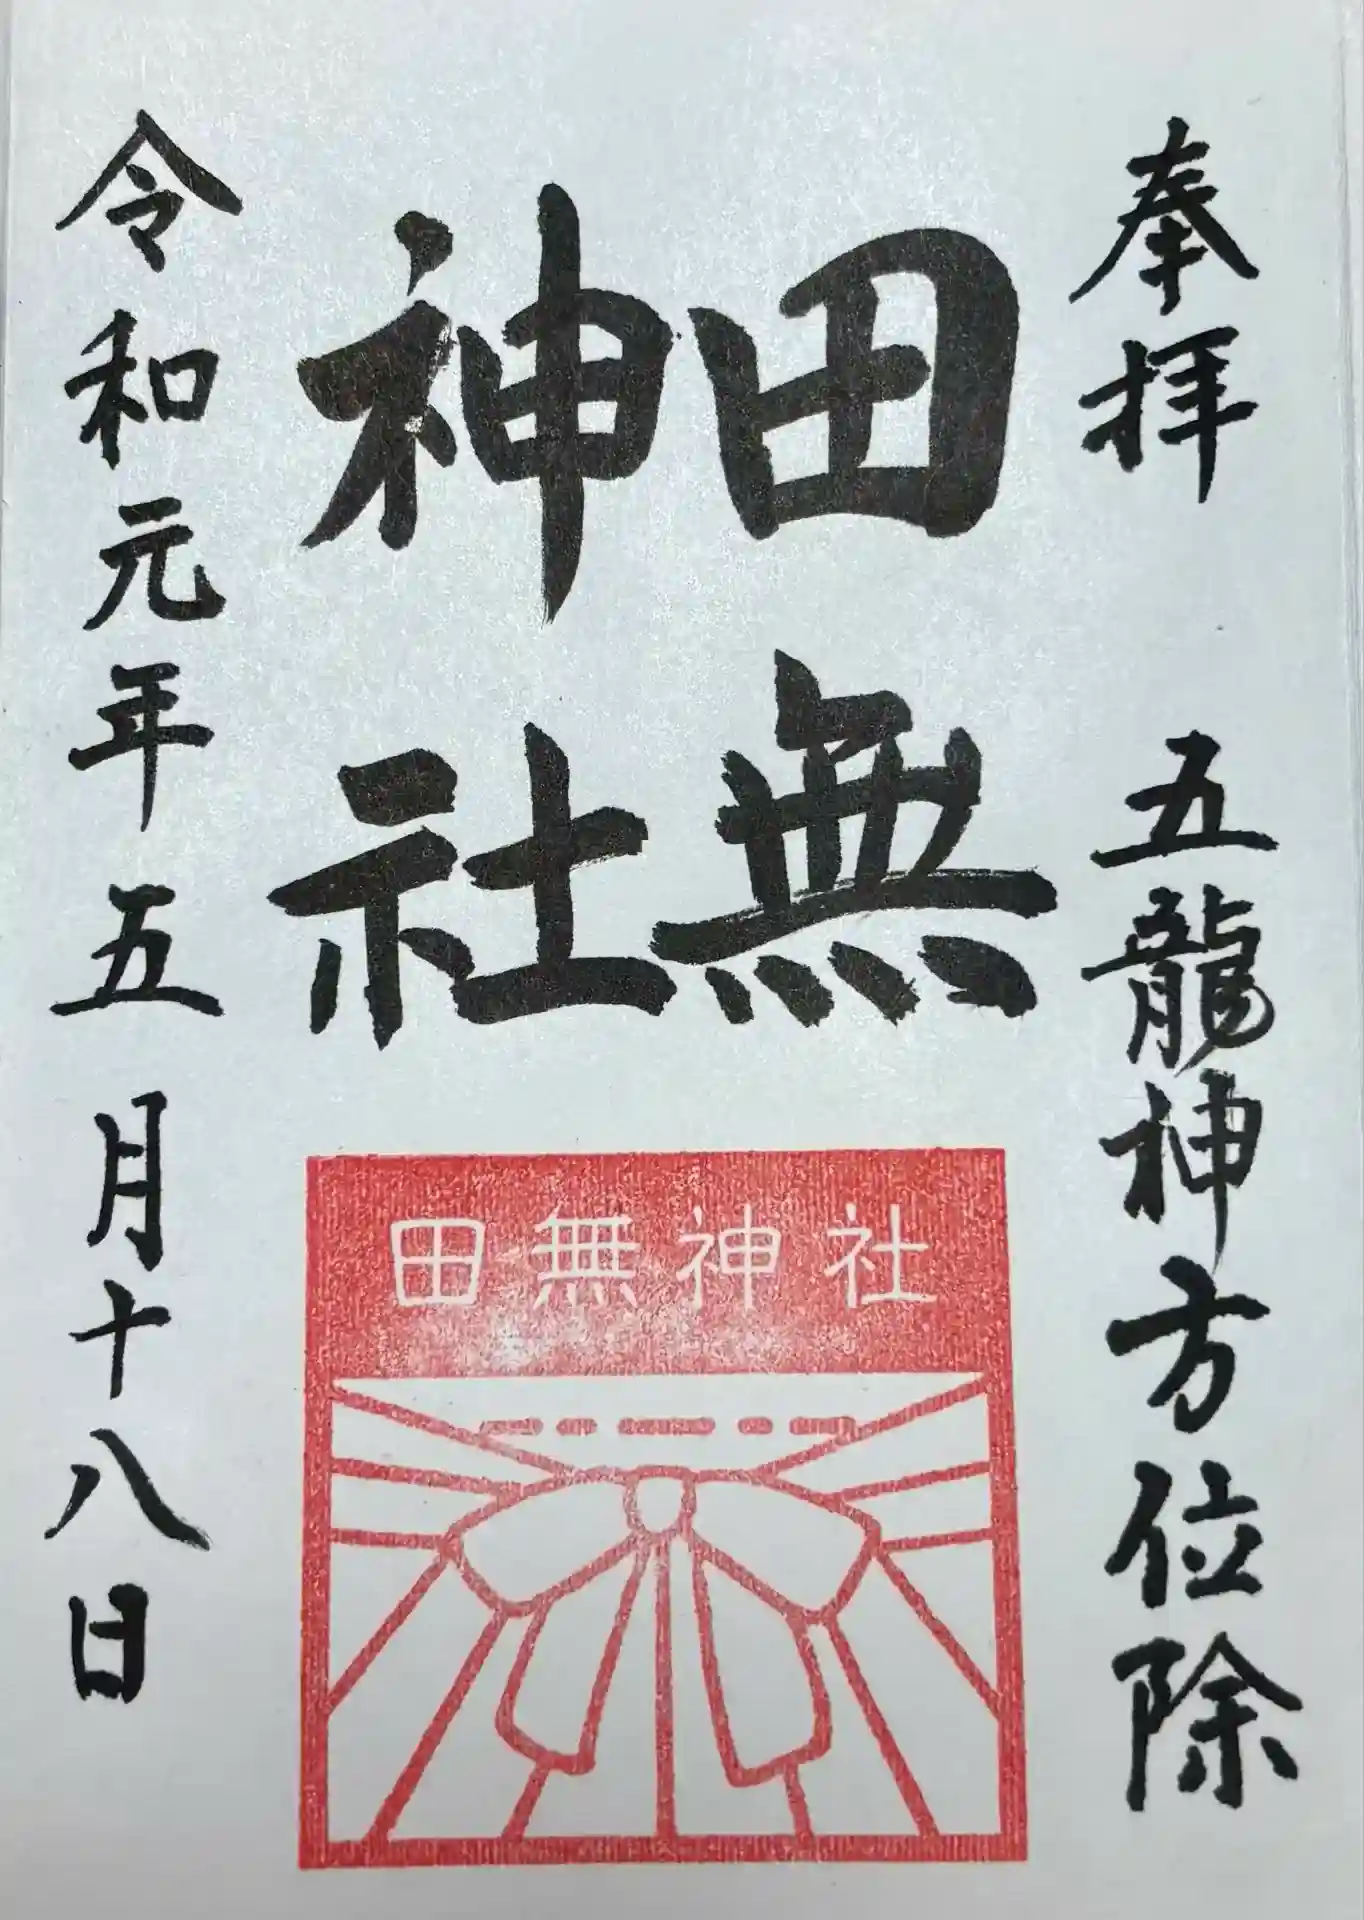 奉拝　五龍神方位除
田無
神社
田無神社
令和元年五月十八日